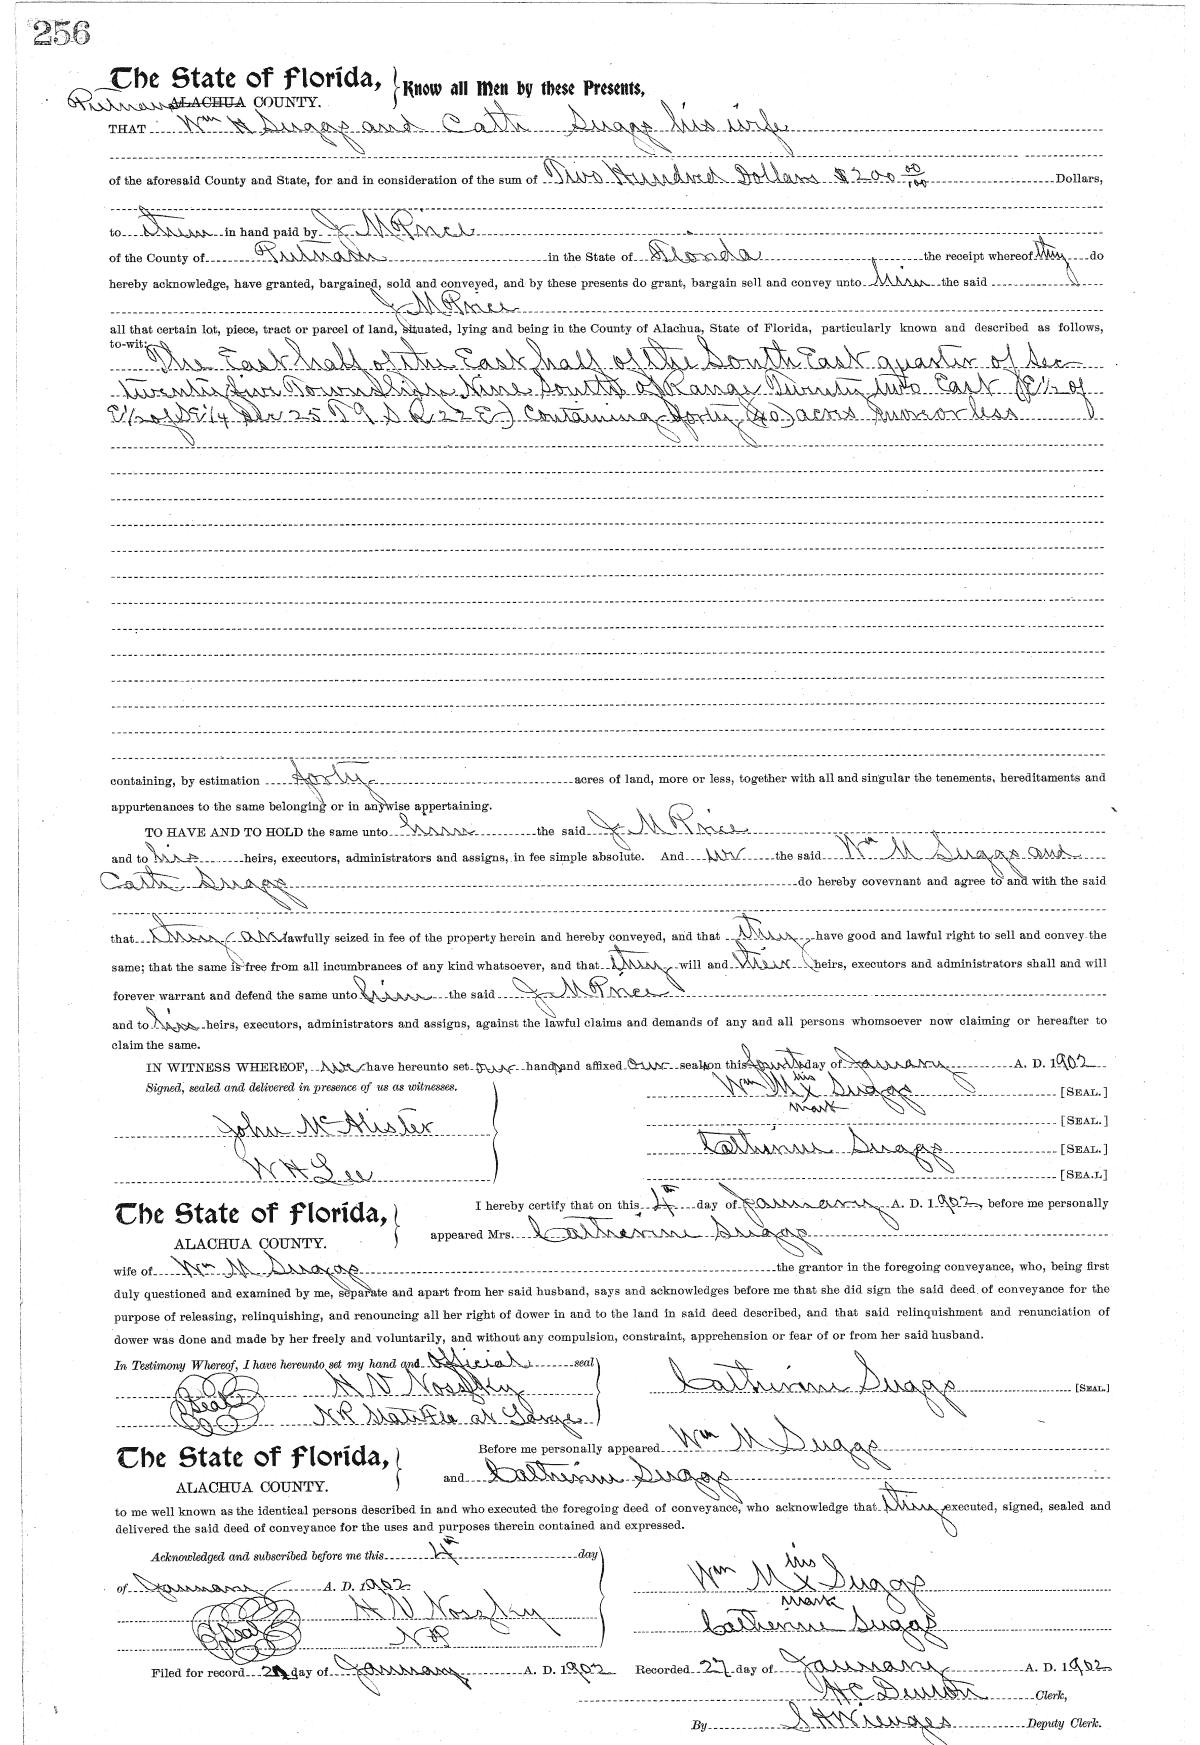 256
The State of Florida, Know all Men by these Presents,
Putnam ALACHUA COUNTY.
THAT Wm H Suggs and Cath Suggs his wife
of the aforesaid County and State, for and in consideration of the sum of Two Hundred Dollars $200 00/100 Dollars,
to them in hand paid by J M Price
of the County of Putnam in the State of Florida the receipt whereof they do
hereby acknowledge, have granted, bargained, sold and conveyed, and by these presents do grant, bargain sell and convey unto him the said
J M Price
all that certain lot, piece, tract or parcel of land, situated, lying and being in the County of Alachua, State of Florida, particularly known and described as follows,
to-wit:
The East half of the East half of the South East quarter of Sec
twenty five Township Nine South of Range Twenty two East (E1/2 of
E1/2 of SE1/4 Sec 25 T 9 S R 22 E) Containing forty (40) acres more or less
containing, by estimation forty acres of land, more or less, together with all and singular the tenements, hereditaments and
appurtenances to the same belonging or in anywise appertaining.
TO HAVE AND TO HOLD the same unto him the said J M Price
and to his heirs, executors, administrators and assigns, in fee simple absolute. And we the said Wm M Suggs and
Cath Suggs do hereby covevnant and agree to and with the said
that they are lawfully seized in fee of the property herein and hereby conveyed, and that they have good and lawful right to sell and convey the
same; that the same is free from all incumbrances of any kind whatsoever, and that they will and their heirs, executors and administrators shall and will
forever warrant and defend the same unto him the said J M Price
and to his heirs, executors, administrators and assigns, against the lawful claims and demands of any and all persons whomsoever now claiming or hereafter to
claim the same.
IN WITNESS WHEREOF, we have hereunto set our hand and affixed our seal on this fourth day of January A. D. 1902
Signed, sealed and delivered in presence of us as witnesses.
Wm M his x mark Suggs [SEAL.]
[SEAL.]
John McAlister
Catherine Suggs [SEAL.]
W H Lee
[SEAL]
The State of Florida, I hereby certify that on this 4th day of January A. D. 1902, before me personally
ALACHUA COUNTY. appeared Mrs. Catherine Suggs
wife of Wm M Suggs the grantor in the foregoing conveyance, who, being first
duly questioned and examined by me, separate and apart from her said husband, says and acknowledges before me that she did sign the said deed of conveyance for the
purpose of releasing, relinquishing, and renouncing all her right of dower in and to the land in said deed described, and that said relinquishment and renunciation of
dower was done and made by her freely and voluntarily, and without any compulsion, constraint, apprehension or fear of or from her said husband.
In Testimony Whereof, I have hereunto set my hand and official seal
Seal H V Noszky Catherine Suggs [SEAL.]
NP State Fla at Large
The State of Florida, Before me personally appeared Wm M Suggs
ALACHUA COUNTY. and Catherine Suggs
to me well known as the identical persons described in and who executed the foregoing deed of conveyance, who acknowledge that they executed, signed, sealed and
delivered the said deed of conveyance for the uses and purposes therein contained and expressed.
Acknowledged and subscribed before me this 4th day
of January A. D. 1902
Wm M his x mark Suggs
Seal H V Noszky
Catherine Suggs
NP
Filed for record day of January A. D. 1902 Recorded 27 day of January A. D. 1902
H C Denton Clerk,
By S H Wienges Deputy Clerk.